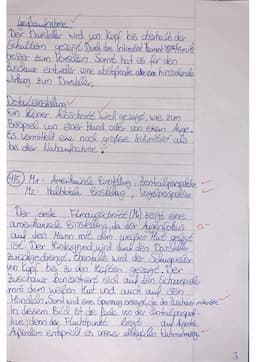 Großaufnahme
Der Darsteller wird von Kopf bis oberhalb der
Schultern gezeigt. Durch das Intimität kommt
besser zum Vorschein. Somit hat es für den
Zuschauer entweder eine abstoßende oder eine hinziehende
Wirkung zum Darsteller.
Detaileinstellung
Ein kleiner Ausschnitt wird gezeigt, wie zum
Beispiel von einer Hand oder von einem Auge.
Es vermittelt eine noch größere Intimität als
bei der Nahaufnahme.
M1: Amerikanische Einstellung, Zentralperspektive
M2: Halbtotale Einstellung, Vogelperspektive
Der erste Filmausschnitt (M1) zeigt eine
amerikanische Einstellung, da der Augenfokus
auf den Mann mit dem weißen Hut gelegt
ist. Der Hintergrund wird durch den Darsteller
zurückgedrängt. Ebenfalls wird der Schauspieler
von Kopf bis zu den Hüften gezeigt. Der
Zuschauer konzentriert sich auf den Schauspieler
mit dem weißen Hut und auch auf sein
Handeln. Somit wird eine Spannung erzeugt, die der Zuschauer
In diesem Bild ist die Rede von der Zentralperspek-
tive, denn der Fluchtpunkt liegt auf
entspricht es unserer alltäglichen Wahrnehmung.
3